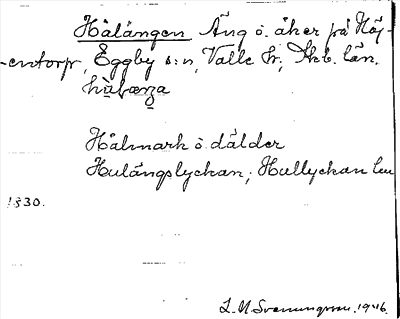 Hålängen Äng o. åker på Höj-
-entorp Eggby s:n, Valle hr; Skb. län.
Hålmark o dälder
Hulängslyckan; Hullyckan
1830.
L. M. Svenungsson. 1946.